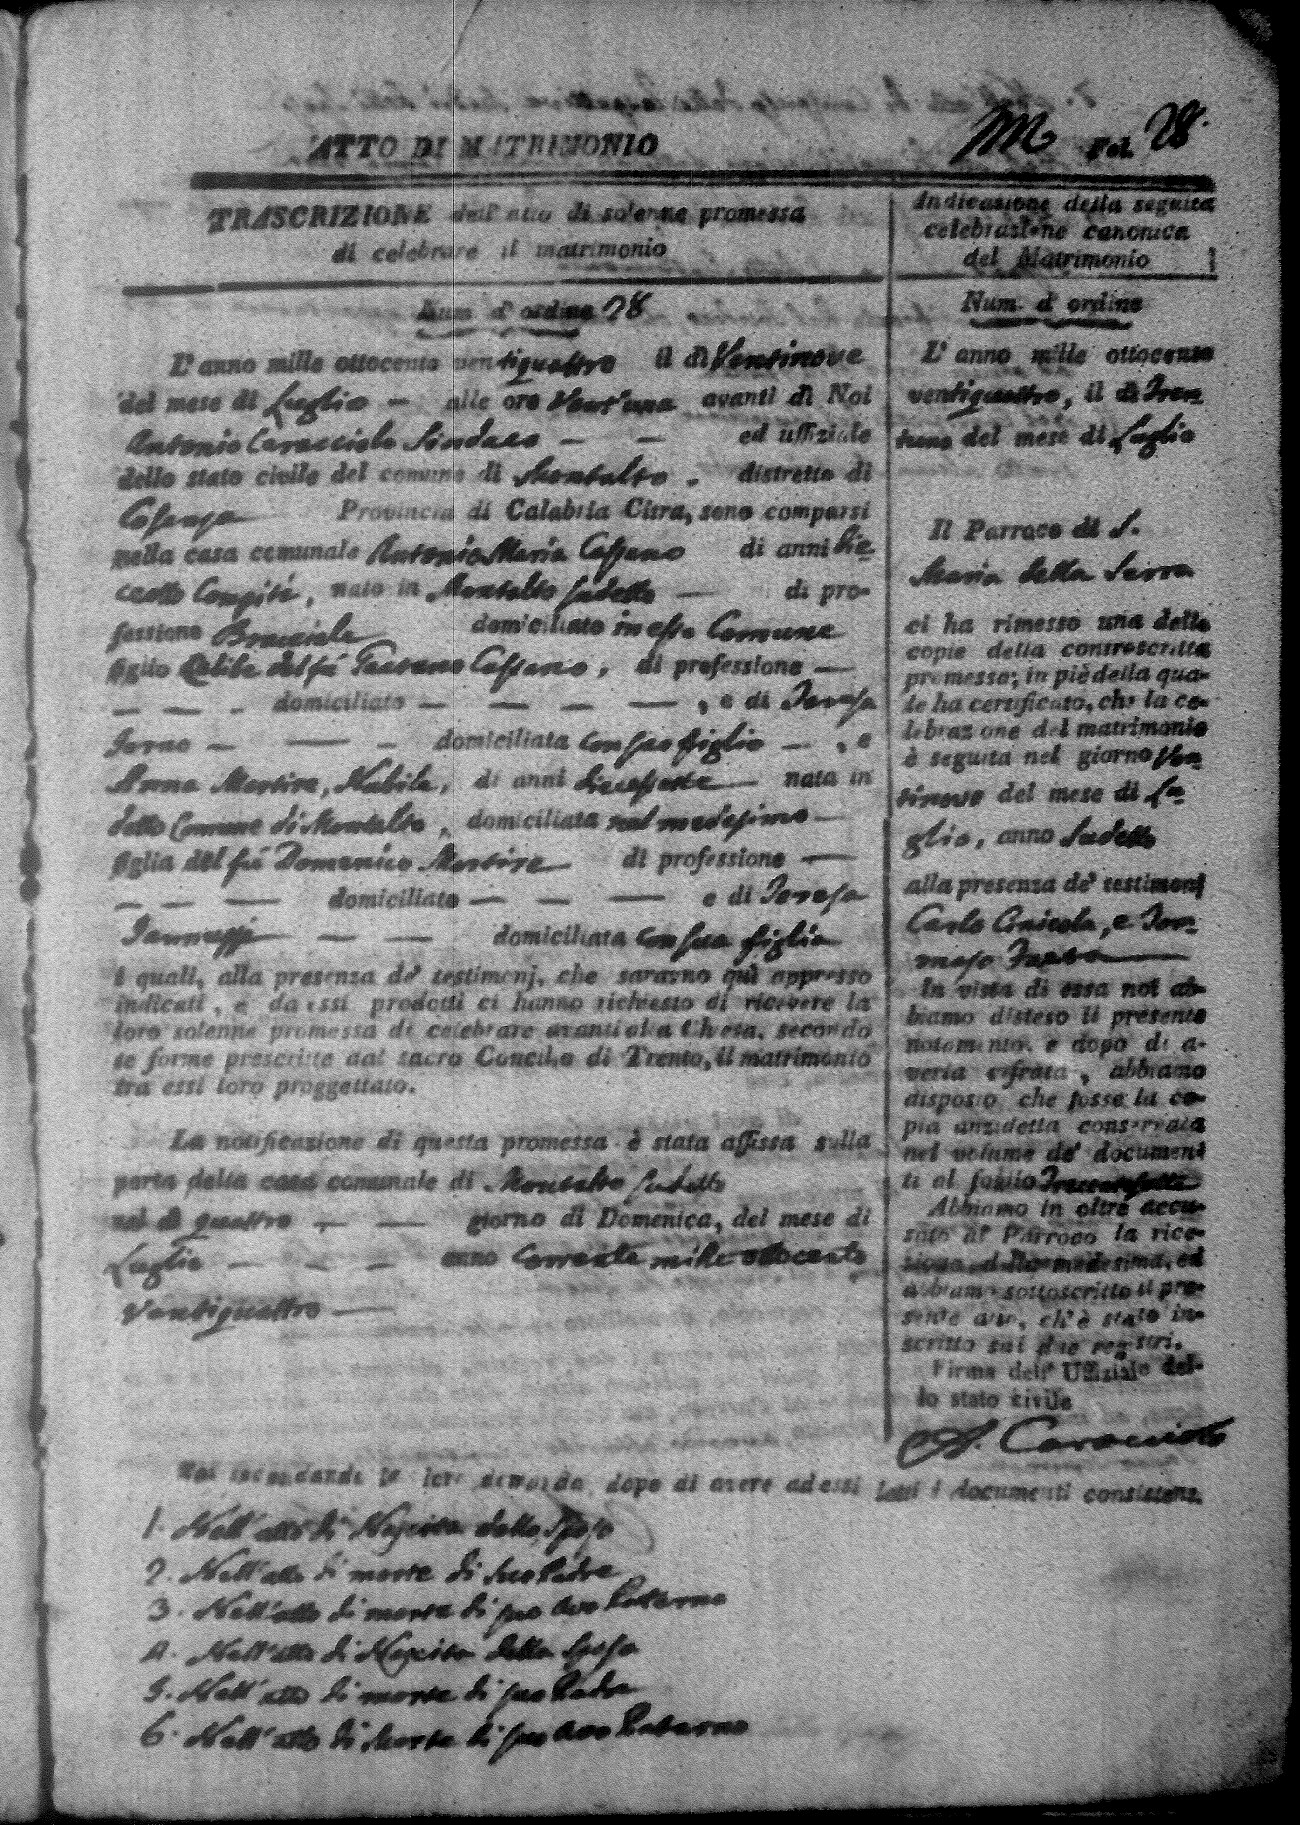 ATTO DI MATRIMONIO
Fol. 28.
TRASCRIZIONE dell'atto di solenne promessa
di celebrare il matrimonio
Num. d' ordine 28
L' anno mille ottocento ventiquattro il dì Ventinove
del mese di Luglio – alle ore Vent'una avanti di Noi
Antonio Caracciolo Sindaco – – ed uffiziale
dello stato civile del comune di Montalto . distretto di
Cosenza Provincia di Calabria Citra, sono comparsi
nella casa comunale Antonio Maria Cassano di anni Die-
ciotto Compiti, nato in Montalto sudetto — di pro-
fessione Bracciale domiciliato in esso Comune
figlio del fù Gaetano Cassano, di professione —
— — - domiciliato — — — — , e di Teresa
— — – domiciliata con suo figlio – , e
Anna Nubile, di anni diecisette — nata in
detto Comune di Montalto, domiciliata nel medesimo —
figlia del fù Domenico di professione —
— — — domiciliato — — — e di Teresa
Iannuzzi — — domiciliata con sua figlia
i quali, alla presenza de' testimonj, che saranno quì appresso
indicati, e da essi prodotti ci hanno richiesto di ricevere la
loro solenne promessa di celebrare avanti alla Chiesa, secondo
le forme prescritte dal sacro Concilio di Trento, il matrimonio
tra essi loro proggettato.
La notificazione di questa promessa è stata affissa sulla
porta della casa comunale di Montalto sudetto
nel dì quattro — — giorno di Domenica, del mese di
Luglio — — — anno corrente mille ottocento
Ventiquattro —
Indicazione della seguita
celebrazione canonica
del Matrimonio
Num. d' ordine
L' anno mille ottocento
ventiquattro, il dì Tren-
tuno del mese di Luglio
Il Parroco di S.
Maria della Serra
ci ha rimesso una delle
copie della controscritta
promessa; in piè della qua-
le ha certificato, che la ce-
lebrazione del matrimonio
è seguita nel giorno Ven-
tinove del mese di Lu-
glio, anno Sudetto
alla presenza de' testimonj
Carlo Cnicola, e Tom-
maso
In vista di essa noi ab-
biamo disteso il presente
notamento, e dopo di a-
verla cifrata, abbiamo
disposto che fosse la co-
pia anzidetta conservata
nel volume de' documen-
ti al foglio
Abbiamo in oltre accu-
sato al Parroco la rice-
zione della medesima, ed
abbiamo sottoscritto il pre-
sente atto, ch'è stato in-
scritto sui due registri.
Firma dell' Uffiziale del-
lo stato civile
A. Caracciolo
Noi secondando la loro dimanda dopo di avere ad essi letti i documenti consistenti
1. Nell'atto di Nascita dello Sposo
2. Nell'atto di morte di suo Padre
3. Nell'atto di morte di suo Avo Paterno
4. Nell'atto di Nascita della Sposa
5. Nell'atto di morte di suo Padre
6. Nell'atto di Morte di suo Avo Paterno